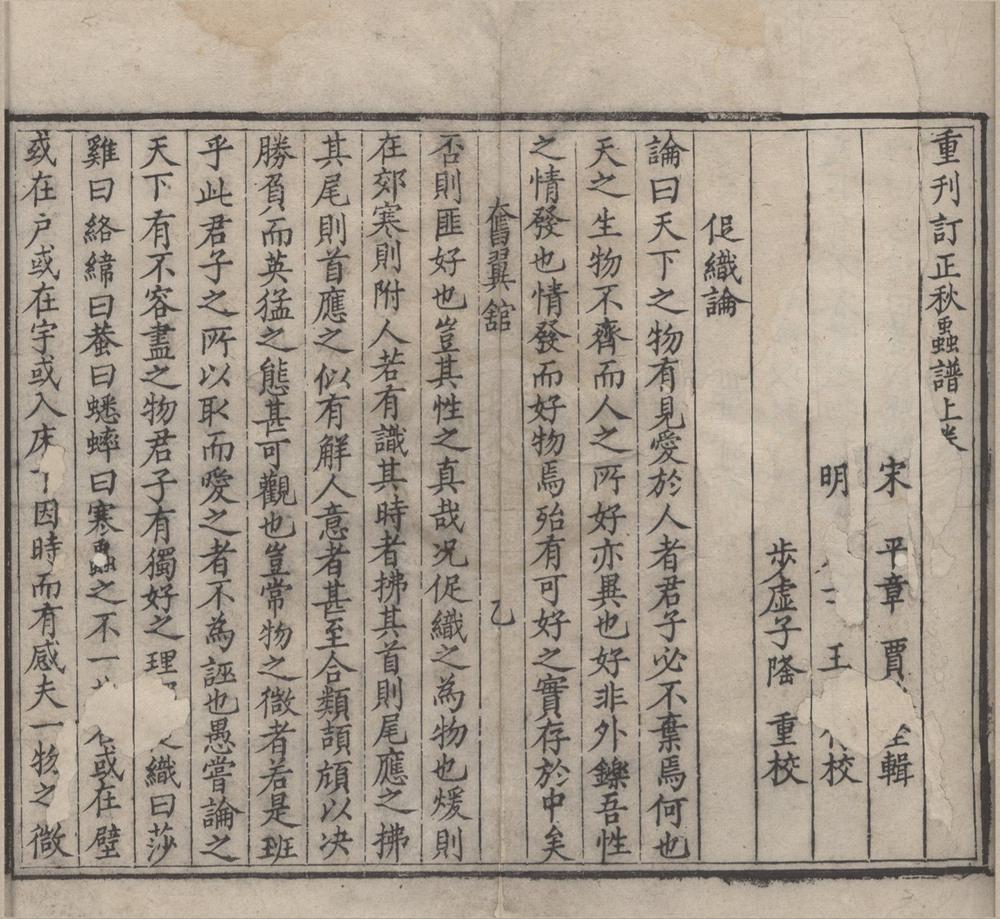 重刊訂正秋蟲譜上卷
宋 平章 賈 輯
明 王 校
步虛子隆 重校
促織論
論曰天下之物有見愛於人者君子必不棄焉何也
天之生物不齊而人之所好亦異也好非外鑠吾性
之情發也情發而好物焉殆有可好之實存於中矣
奮翼舘 乙
否則匪好也豈其性之真哉况促織之為物也煖則
在郊寒則附人若有識其時者拂其首則尾應之拂
其尾則首應之似有解人意者甚至合類頡頏以决
勝負而英猛之態甚可觀也豈常物之微者若是班
乎此君子之所以取而愛之者不為誣也愚嘗論之
天下有不容盡之物君子有獨好之理 織曰莎
雞曰絡緯曰蛬曰蟋蟀曰寒蟲之不一 或在壁
或在户或在宇或入床下因時而有感夫一物之微